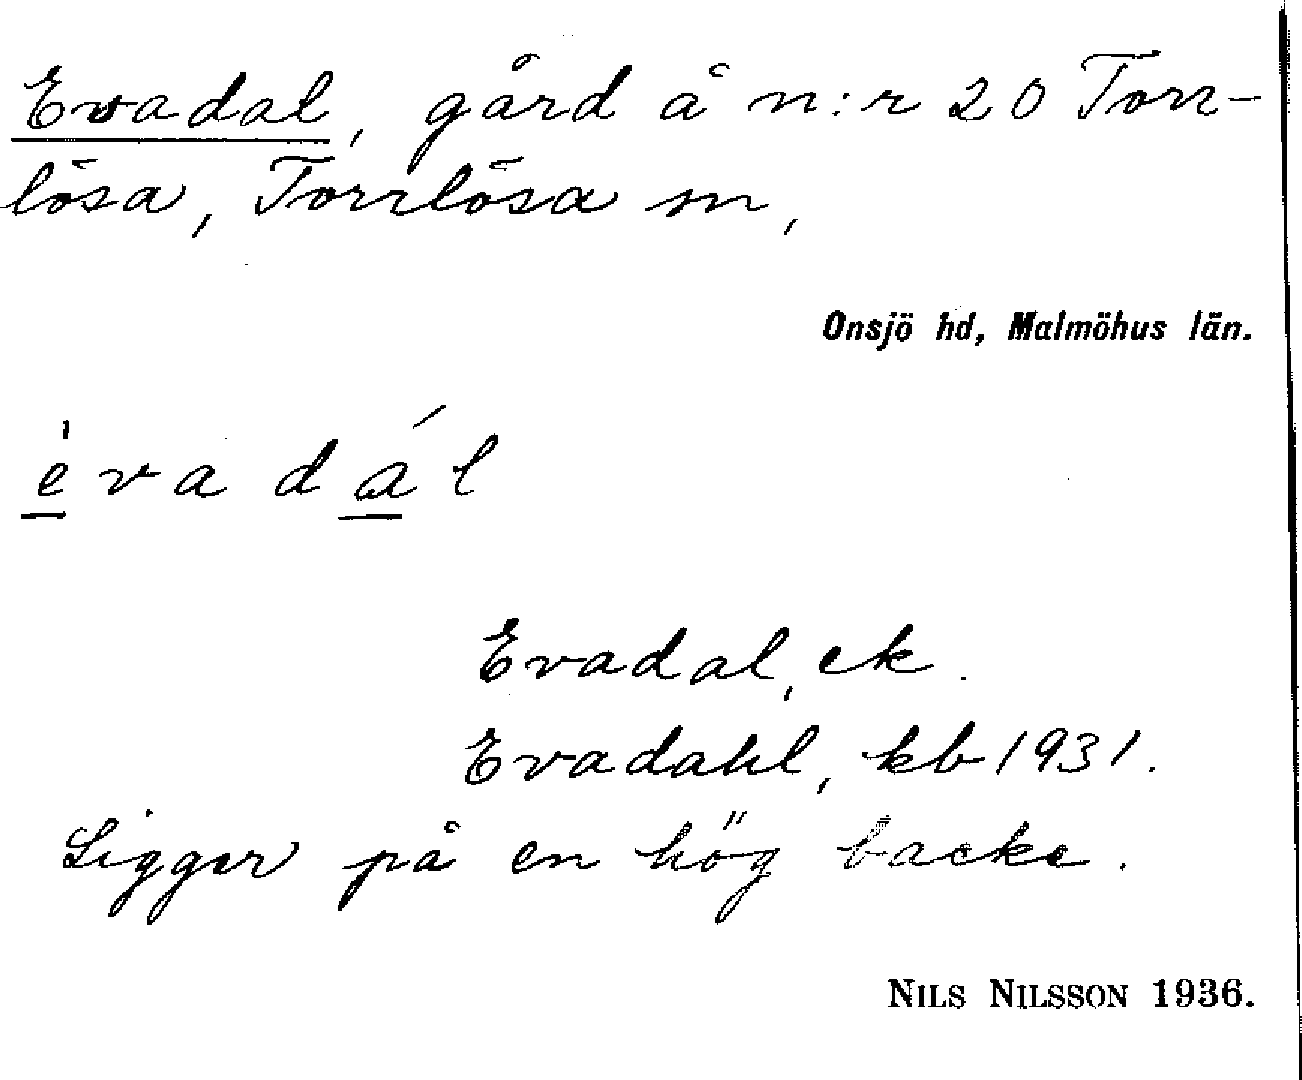 Evadal, gård å n:r 20 Torr-
lösa, Torrlösa sn,
Onsjö hd, Malmöhus län.
èvadál
Evadal, ek.
Evadahl, kb 1931.
Ligger på en hög backe.
NILS NILSSON 1936.